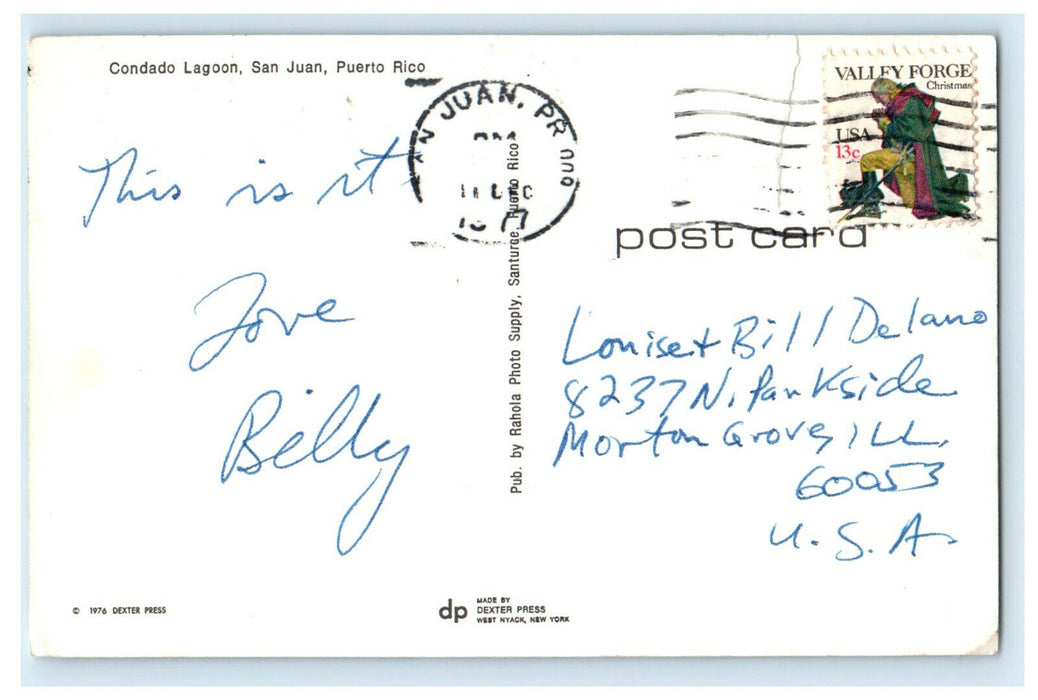 Condado Lagoon, San Juan, Puerto Rico
SAN JUAN, PR 000
1977
VALLEY FORGE
Christmas
USA
13c
post card
This is it
Love
Billy
Louise + Bill Delano
8237 N. Parkside
Morton Grove, ILL.
60053
U.S.A.
Pub. by Rahola Photo Supply, Santurce, Puerto Rico
© 1976 DEXTER PRESS
dp
MADE BY
DEXTER PRESS
WEST NYACK, NEW YORK